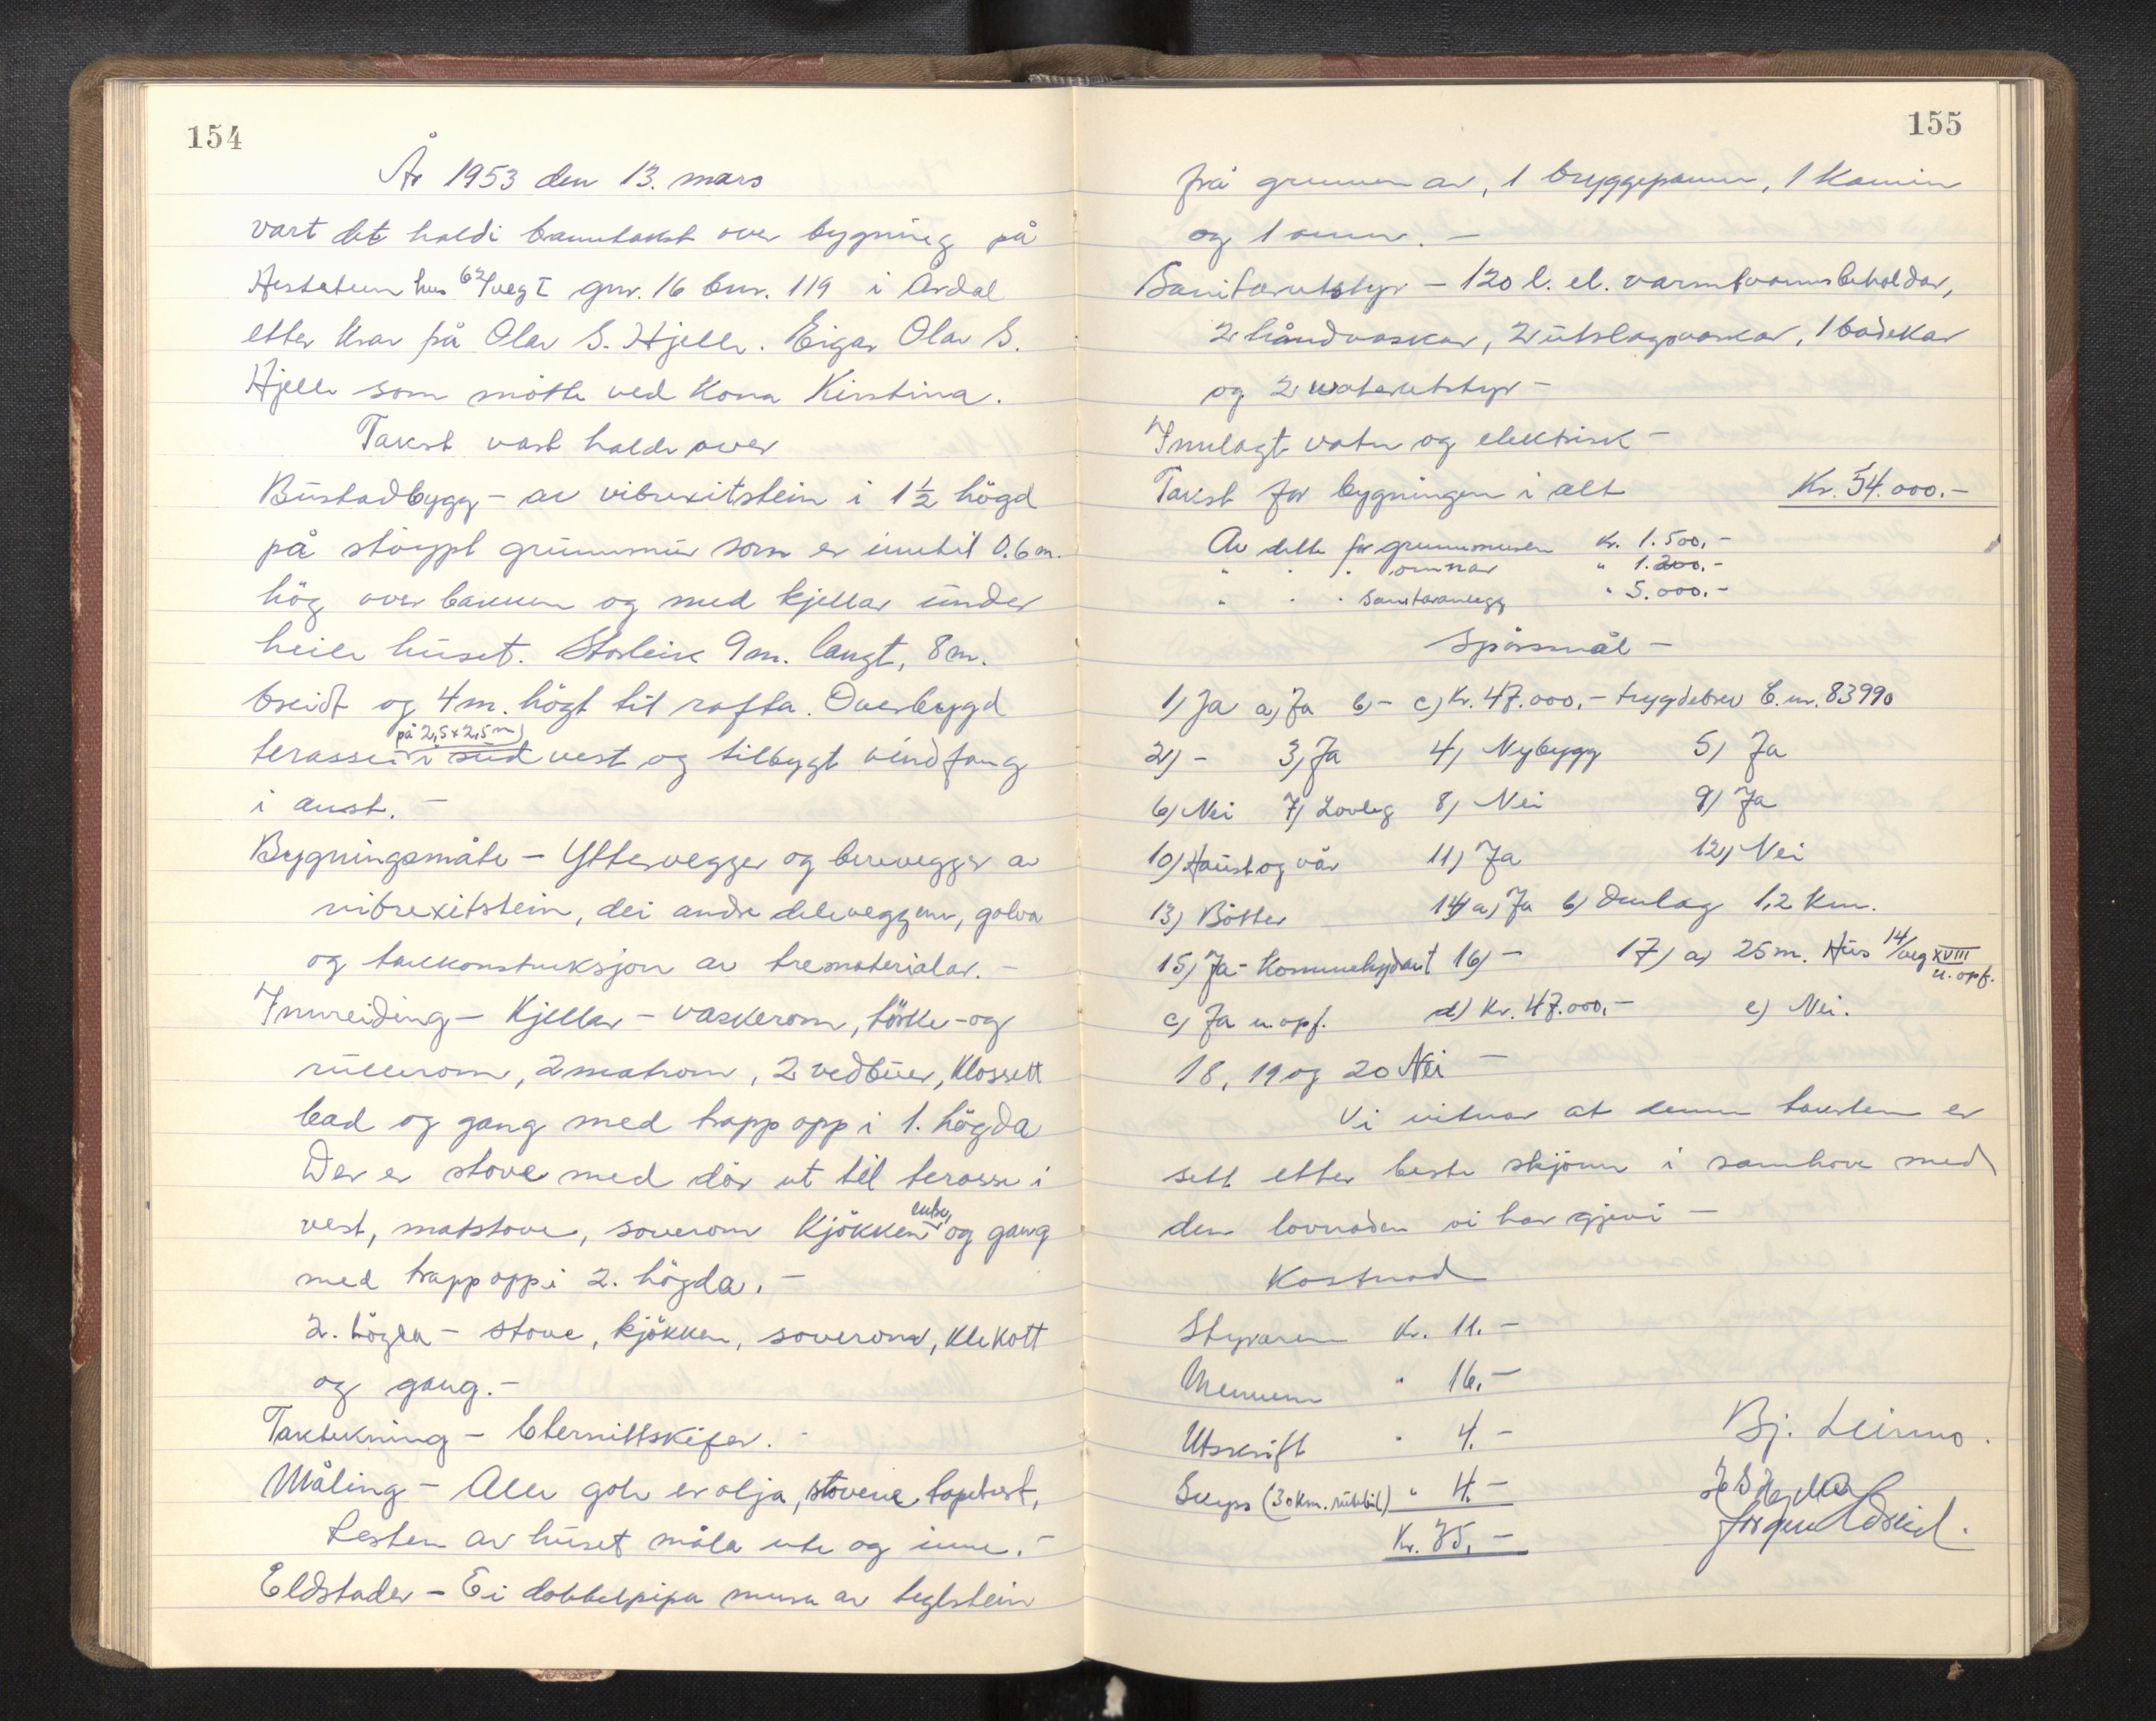 154
År 1953 den 13. mars
vart det haldi branntakst over bygning på
Hestetun hus 62/veg I gnr. 16 bnr. 119 i Årdal
etter krav på Olav S. Hjelle. Eigar Olav S.
Hjelle som møtte ved kona Kirstina.
Takst vart halde over
Bustadbygg - av vibrexitstein i 1½ högd
på stöypt grunnmur som er inntil 0.6 m.
hög over bakken og med kjellar under
heile huset. Storleik 9 m. langt, 8 m.
breidt og 4 m. högt til rafta. Overbygd
terasse på 2,5 x 2,5 m i sud vest og tilbygt vindfang
i aust. -
Bygningsmåte - Yttervegger og berevegger av
vibrexitstein, dei andre deleveggene, golva
og takkonstruksjon av trematerialar. -
Innreiding - Kjellar - vaskerom, törke- og
rullerom, 2 matrom, 2 vedbuer, klossett
bad og gang med trapp opp i 1. högda
Der er stove med dör ut til terasse i
vest, matstove, soverom kjökken entre, og gang
med trapp opp i 2. högda. -
2. högda - stove, kjökken, soverom, klekott
og gang. -
Taktekning - Eternittskifer. -
Måling - Alle golv er olja, stovene tapetsert,
resten av huset måla ute og inne. -
Eldstader - Ei dobbelpipa mura av teglstein
155
frå grunnen av, 1 bryggepanne, 1 kamin
og 1 omn. -
Sanitærutstyr - 120 l. el. varmtvannsbeholdar,
2 håndvaskar, 2 utslagsvaskar, 1 badekar
og 2 waterutstyr -
Innlagt vatn og elektrisk -
Takst for bygningen i alt Kr. 54.000.-
Av dette for grunnmuren kr. 1.500,-
" " " omnar " 1.200.-
" " " sanitæranlegg " 5.000.-
Spörsmål -
1) Ja a) Ja b) - c) Kr. 47.000.- trygdebrev E. nr. 83990
2) - 3) Ja 4) Nybygg 5) Ja
6) Nei 7) Lovleg 8) Nei 9) Ja
10) Haust og vår 11) Ja 12) Nei
13) Bötter 14) a) Ja b) Omlag 1,2 km.
15) Ja - Kommunehydrant 16) - 17) a) 25 m. Hus 14/veg XVIII
u. opf.
c) Ja u. opf. d) Kr. 47.000.- e) Nei.
18, 19 og 20 Nei -
Vi vitnar at denne taksten er
sett etter beste skjönn i samhøve med
den lovnaden vi har gjevi -
Kostnad
Styraren Kr. 11. -
Mennene " 16. -
Utskrift " 4. -
Skyss (30 km. rutebil) " 4. -
Kr. 35. -
Bj. Leirmo.